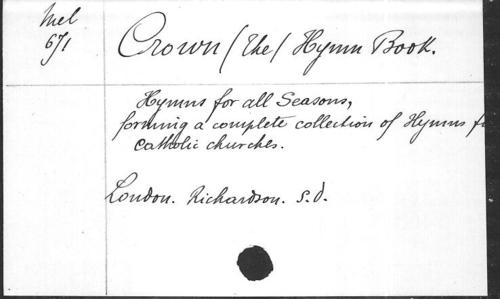 Mel
671
Crown / The / Hymn Book.
Hymns for all Seasons,
forming a complete collection of Hymns f
catholic churches.
London. Richardson. s.d.